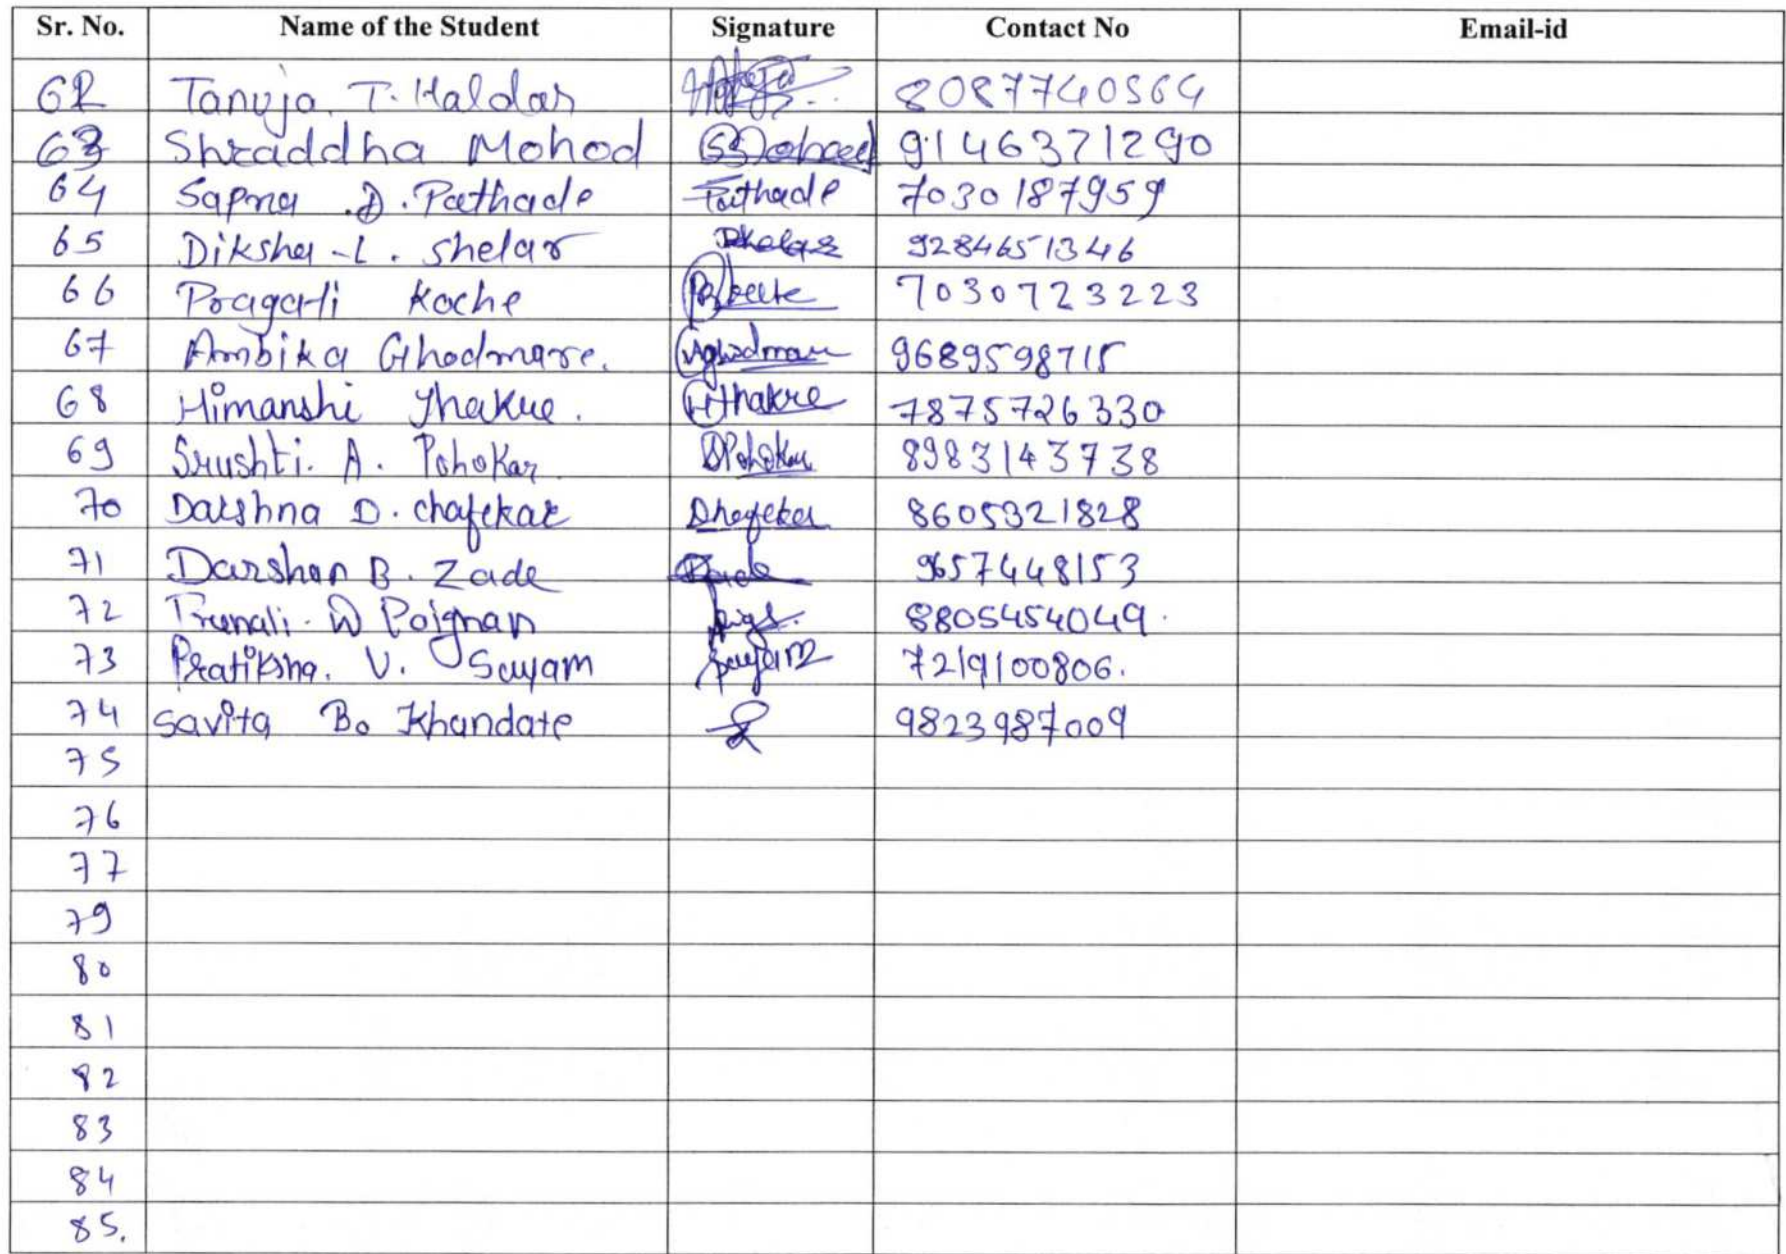 Sr. No. Name of the Student Signature Contact No Email-id
62 Tanuja. T. Haldar 8087740564
63 Shraddha Mohod 9146371290
64 Sapna .D. Pathade Pathade 7030187959
65 Diksha -L. Shelar 9284651346
66 Pragati Koche 7030723223
67 Ambika Ghodmare. 9689598715
68 Himanshi Thakre. HThakre 7875726330
69 Srushti. A. Pohokar SPohokar 8983143738
70 Darshna D. chafekar 8605321828
71 Darshan B. Zade 9657448153
72 Trunali. W Poignan 8805454049.
73 Pratiksha. V. Sayam Sayam 7219100806.
74 Savita B. Khandate 9823987009
75
76
77
79
80
81
82
83
84
85.